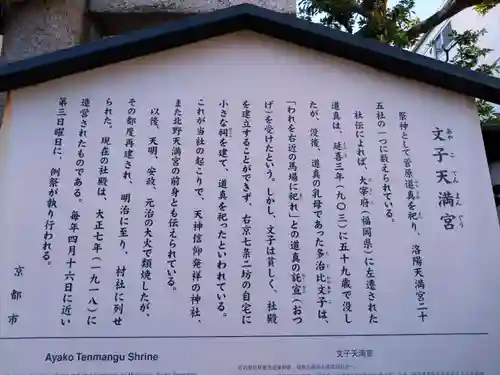 文子天満宮
あやこてんまんぐう
祭神として菅原道真を祀り、洛陽天満宮二十
五社の一つに数えられている。
社伝によれば、大宰府(福岡県)に左遷された
道真は、延喜三年(九〇三)に五十九歳で没し
たが、没後、道真の乳母であった多治比文子は、
「われを右近の馬場に祀れ」との道真の託宣(おつ
げ)を受けたという。しかし、文子は貧しく、社殿
を建立することができず、右京七条二坊の自宅に
小さな祠を建て、道真を祀ったといわれている。
これが当社の起こりで、天神信仰発祥の神社、
また北野天満宮の前身とも伝えられている。
以後、天明、安政、元治の大火で類焼したが、
その都度再建され、明治に至り、村社に列せ
られた。現在の社殿は、大正七年(一九一八)に
造営されたものである。毎年四月十六日に近い
第三日曜日に、例祭が執り行われる。
京都市
Ayako Tenmangu Shrine
文子天満宮